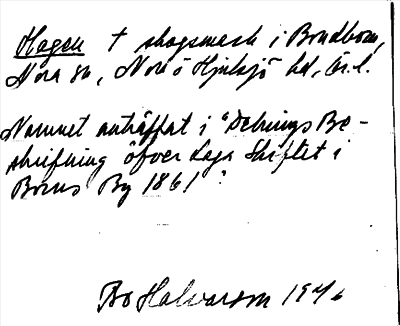 Hagen † skogsmark i Bondborn,
Nora sn, Nora o Hjulsjö hd, Ör. l.
Namnet anträffat i "Delnings Be-
skrifning öfver Laga Skiftet i
Borns By 1861".
Bo Halvarson 1946